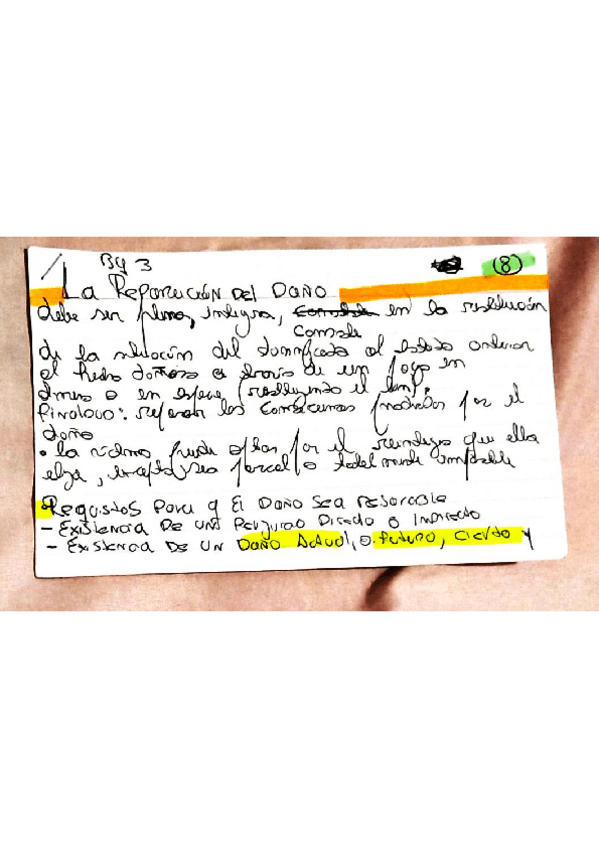 By 3
(8)
La Reparación del Daño
debe ser plena, integra, en la restitución
Consiste
de la situación del damnificado al estado anterior
el hecho dañoso a través de un pago en
dinero o en especie (restituyendo el bien).
Finalidad: reparar las consecuencias producidas por el
daño
• la víctima puede optar por el reintegro que ella
elija, excepto sea parcial o totalmente imposible
Requisitos Para q El Daño Sea Resarcible
- Existencia De un Perjuicio Directo o Indirecto
- Existencia De un Daño Actual, o futuro, Cierto y